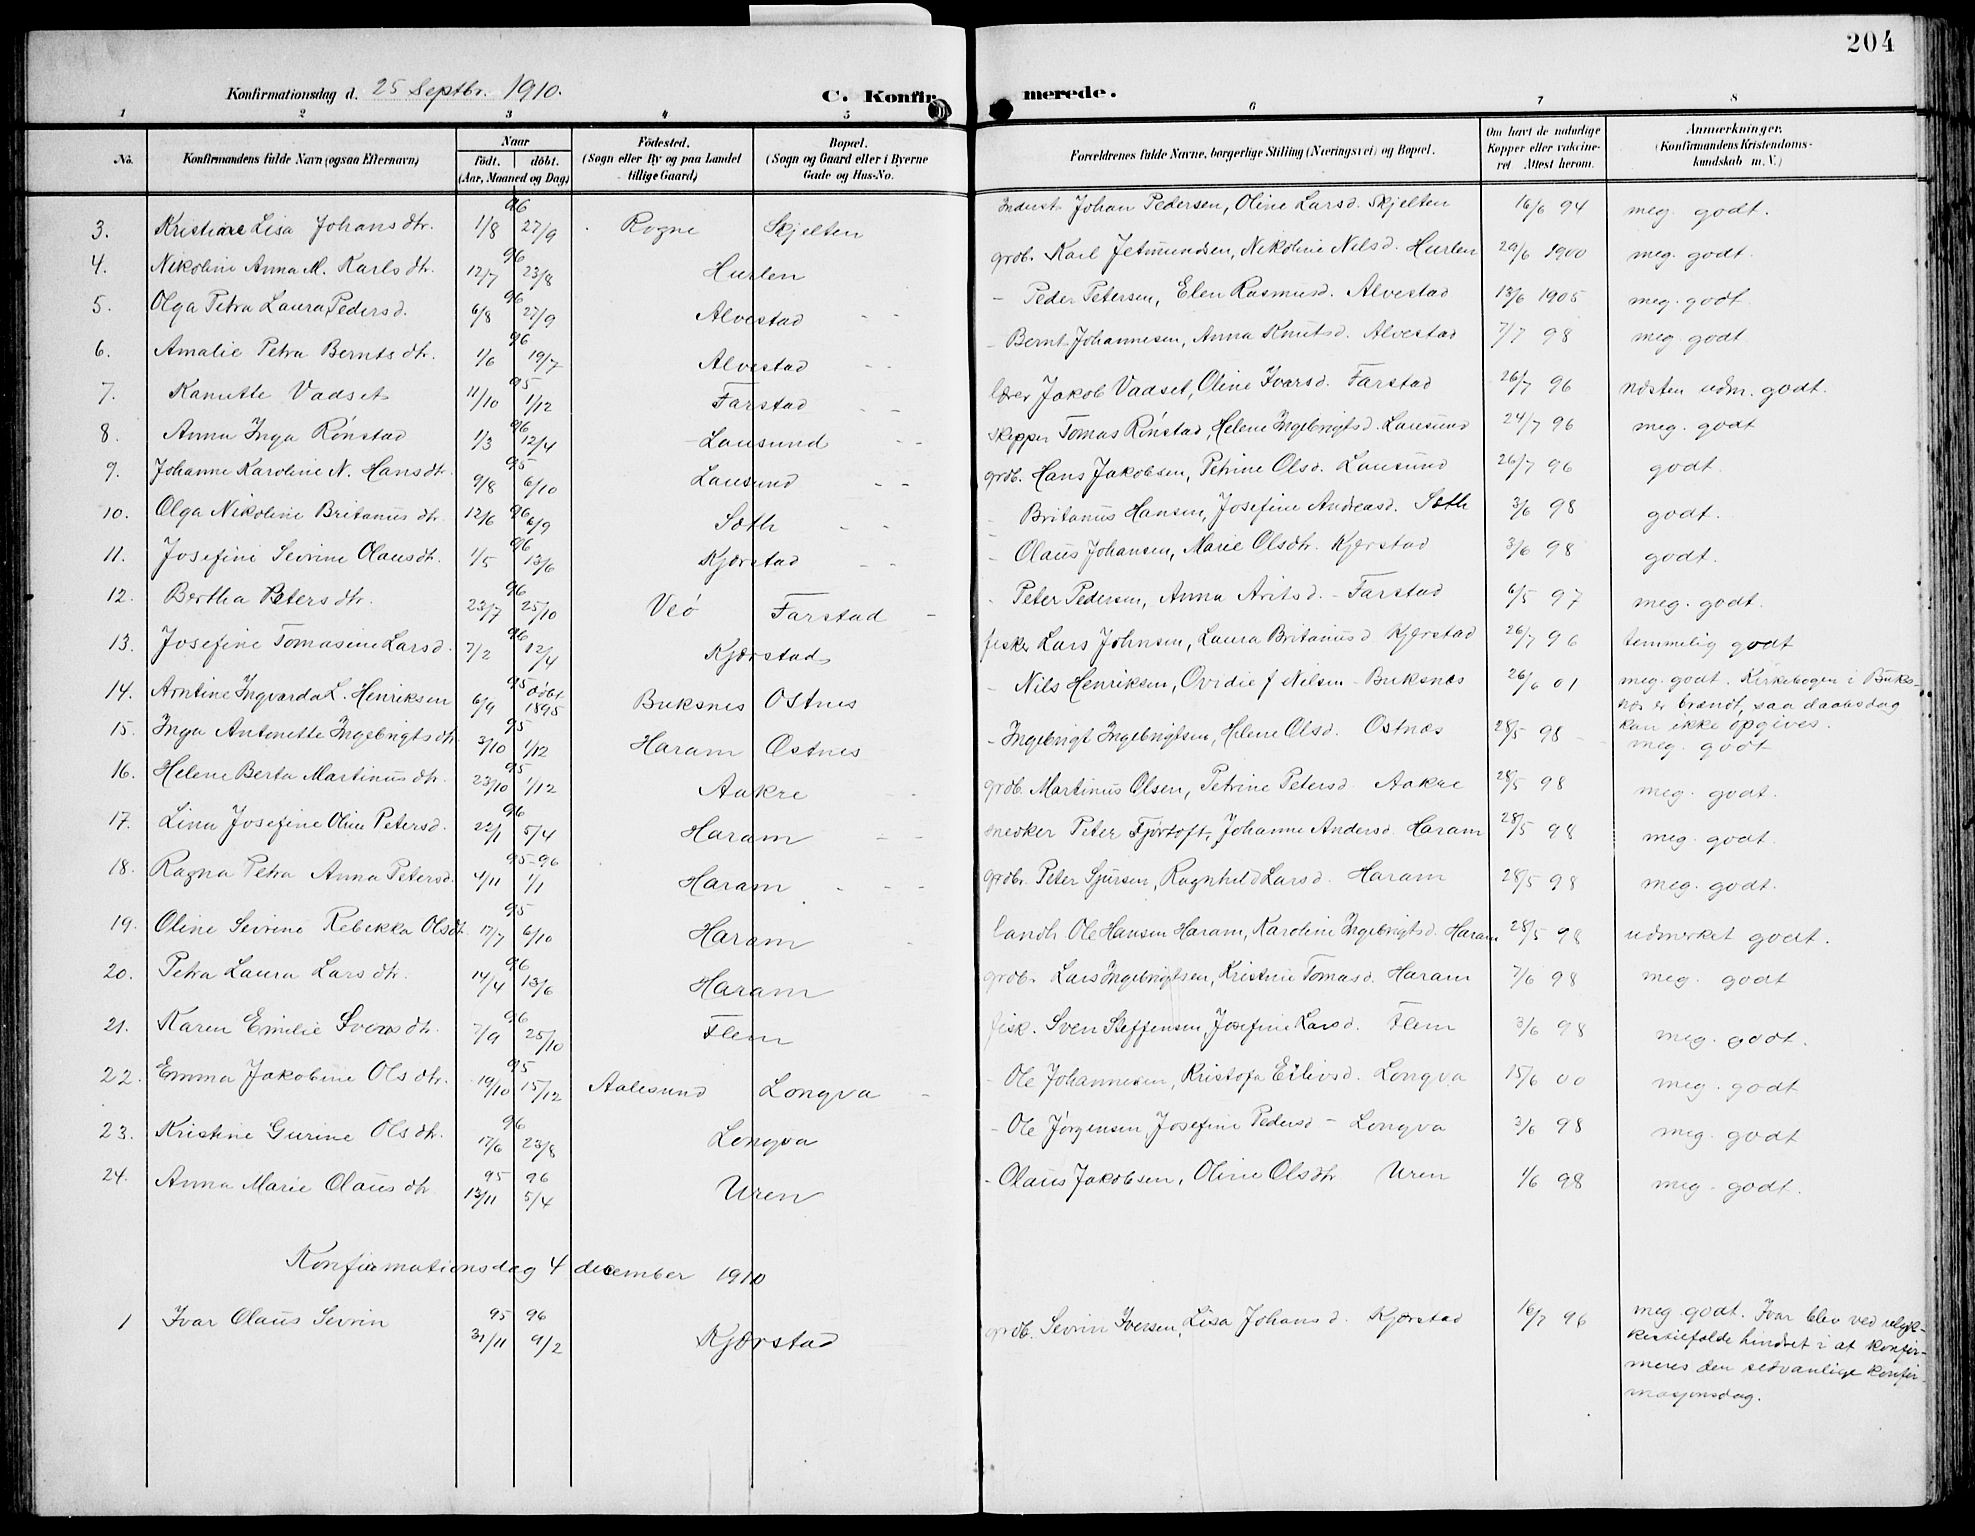 204
Konfirmationsdag d. 25 Septbr. 1910.
C. Konfirmerede.
1 2 3 4 5 6 7 8
No. Konfirmandens fulde Navn (ogsaa Efternavn) Naar født. døbt. (Aar, Maaned og Dag) Fødested. (Sogn eller By og paa Landet tillige Gaard) Bopæl. (Sogn og Gaard eller i Byerne Gade og Hus-No. Forældrenes fulde Navne, borgerlige Stilling (Næringsvei) og Bopæl. Om havt de naturlige Kopper eller vaccineret Attest herom. Anmærkninger. (Konfirmandens Kristendomskundskab m. V.)
3. Kristiane Lisa Johansdtr. 96 1/8 27/9 Rogne Skjelten Inderst Johan Pedersen, Oline Larsd. Skjelten 16/6 94 meg. godt.
4. Nikoline Anna M. Karlsdtr. 96 12/7 23/8 Hurlen grdb. Karl Jetmundsen, Nikoline Nilsd. Hurlen 29/6 1900 meg. godt.
5. Olga Petra Laura Pedersd. 96 6/8 27/9 Alvestad - - - Peder Petersen, Elen Rasmusd. Alvestad 13/6 1905 meg. godt
6. Amalie Petra Berntsdtr. 96 1/6 19/7 Alvestad - - - Bernt Johannesen, Anna Knutsd. Alvestad 7/7 98 meg. godt
7. Kanutte Vadset 95 11/10 1/12 Farstad - - lærer Jakob Vadset, Oline Ivarsd. Farstad 26/7 96 næsten udm. godt.
8. Anna Inga Rønstad 96 1/3 12/4 Lausund - - Skipper Tomas Rønstad, Helene Ingebrigtsd. Lausund 24/7 96 meg. godt
9. Johanne Karoline N. Hansdtr. 95 9/8 6/10 Lausund - - grdb. Hans Jakobsen, Petrine Olsd. Lausund 26/7 96 godt.
10. Olga Nikoline Britanusdtr. 96 12/6 6/9 Sæth - - - Britanus Hansen, Josefine Andreasd. Sæth 3/6 98 godt.
11. Josefine Sevrine Olausdtr. 96 1/5 13/6 Kjærstad - - - Olaus Johansen, Marie Olsdtr. Kjærstad 3/6 98 godt.
12. Bertha Petersdtr. 96 23/7 25/10 Veø Farstad - - Peter Pedersen, Anna Aritsd. - Farstad 6/5 97 meg. godt.
13. Josefine Tomasine Larsd. 96 7/2 12/4 Kjærstad fisker Lars Johnsen, Laura Britanusd. Kjærstad 26/7 96 temmelig godt
14. Arntine Ingvarda L. Henriksen 95 6/9 døbt 1895 Buksnes Østnes - Nils Henriksen, Ovidie f Nilsen - Buksnæs 26/6 01 meg. godt. Kirkebogen i Buksnæs er brændt, saa daabsdag kan ikke opgives.
15. Inga Antonette Ingebrigtsdtr. 95 3/10 1/12 Haram Østnes - Ingebrigt Ingebrigtsen, Helene Olsd. Østnæs 28/5 98 - meg. godt
16. Helene Berta Martinusdtr. 95 23/10 1/12 Aakre - - grdb. Martinus Olsen, Petrine Petersd. Aakre 28/5 98 meg. godt.
17. Lina Josefine Oline Petersd. 96 22/1 5/4 Haram - - snedker Peter Fjørtoft, Johanne Andersd. Haram 28/5 98 meg. godt.
18. Ragna Petra Anna Petersd. 95-96 4/11 1/1 Haram - - - grdbr. Peter Sjursen, Ragnhild Larsd. Haram 28/5 98 meg. godt.
19. Oline Sevrine Rebekka Olsdt. 95 17/7 6/10 Haram - landh Ole Hansen Haram, Karoline Ingebrigtsd. Haram 28/5 98 udmerket godt.
20. Petra Laura Larsdtr. 96 14/4 13/6 Haram grdb. Lars Ingebrigtsen, Kristine Tomasd. Haram 7/6 98 meg. godt
21. Karen Emilie Svensdtr. 96 7/9 25/10 Flem fisk. Sven Steffensen, Josefine Larsd. Flem 3/6 98 meg. godt.
22. Emma Jakobine Olsdtr. 95 19/10 15/12 Aalesund Longva - - Ole Johannesen, Kristofa Eilivsd. Longva 15/6 00 meg. godt
23. Kristine Gurine Olsdtr. 96 17/6 23/8 Longva - Ole Jørgensen, Josefine Pedersd - Longva 3/6 98 meg. godt
24. Anna Marie Olausdtr. 95 96 13/11 5/4 Uren - Olaus Jakobsen, Oline Olsdtr Uren 1/6 98 meg. godt.
Konfirmationsdag 4 december 1910
1 Ivar Olaus Sevrin 95 96 31/11 9/2 Kjærstad grdb. Sevrin Iversen, Lisa Johansd. Kjærstad 16/7 96 meg. godt. Ivar blev ved ulyk-
kestilfælde hindret i at konfir-
meres den sedvanlige konfir-
masjonsdag.